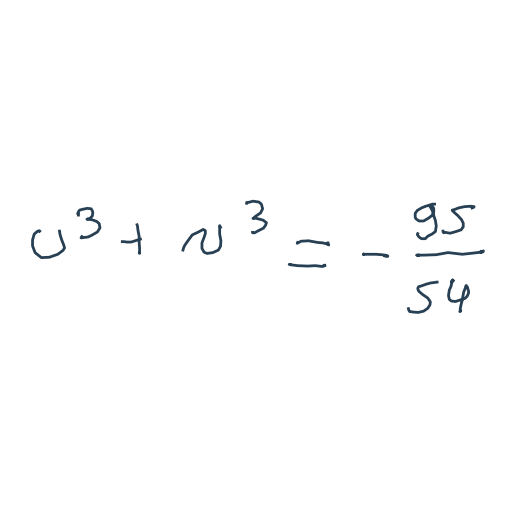 u^3 + v^3 = -\frac{95}{54}